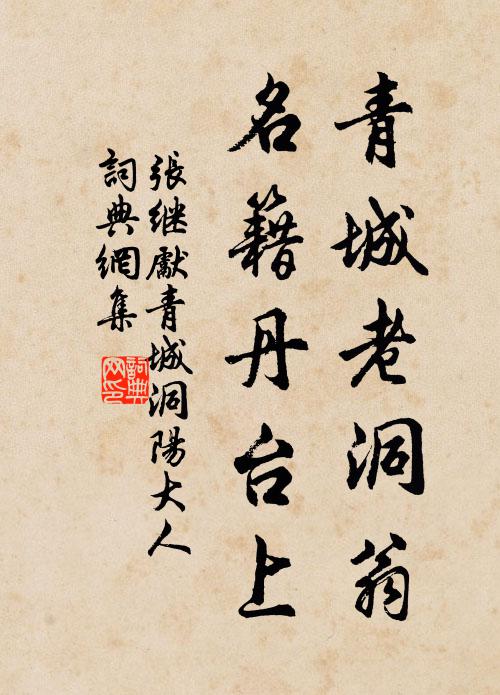 青城老洞翁
名籍丹台上
張继獻青城洞陽大人
詞典網集
詞典网印